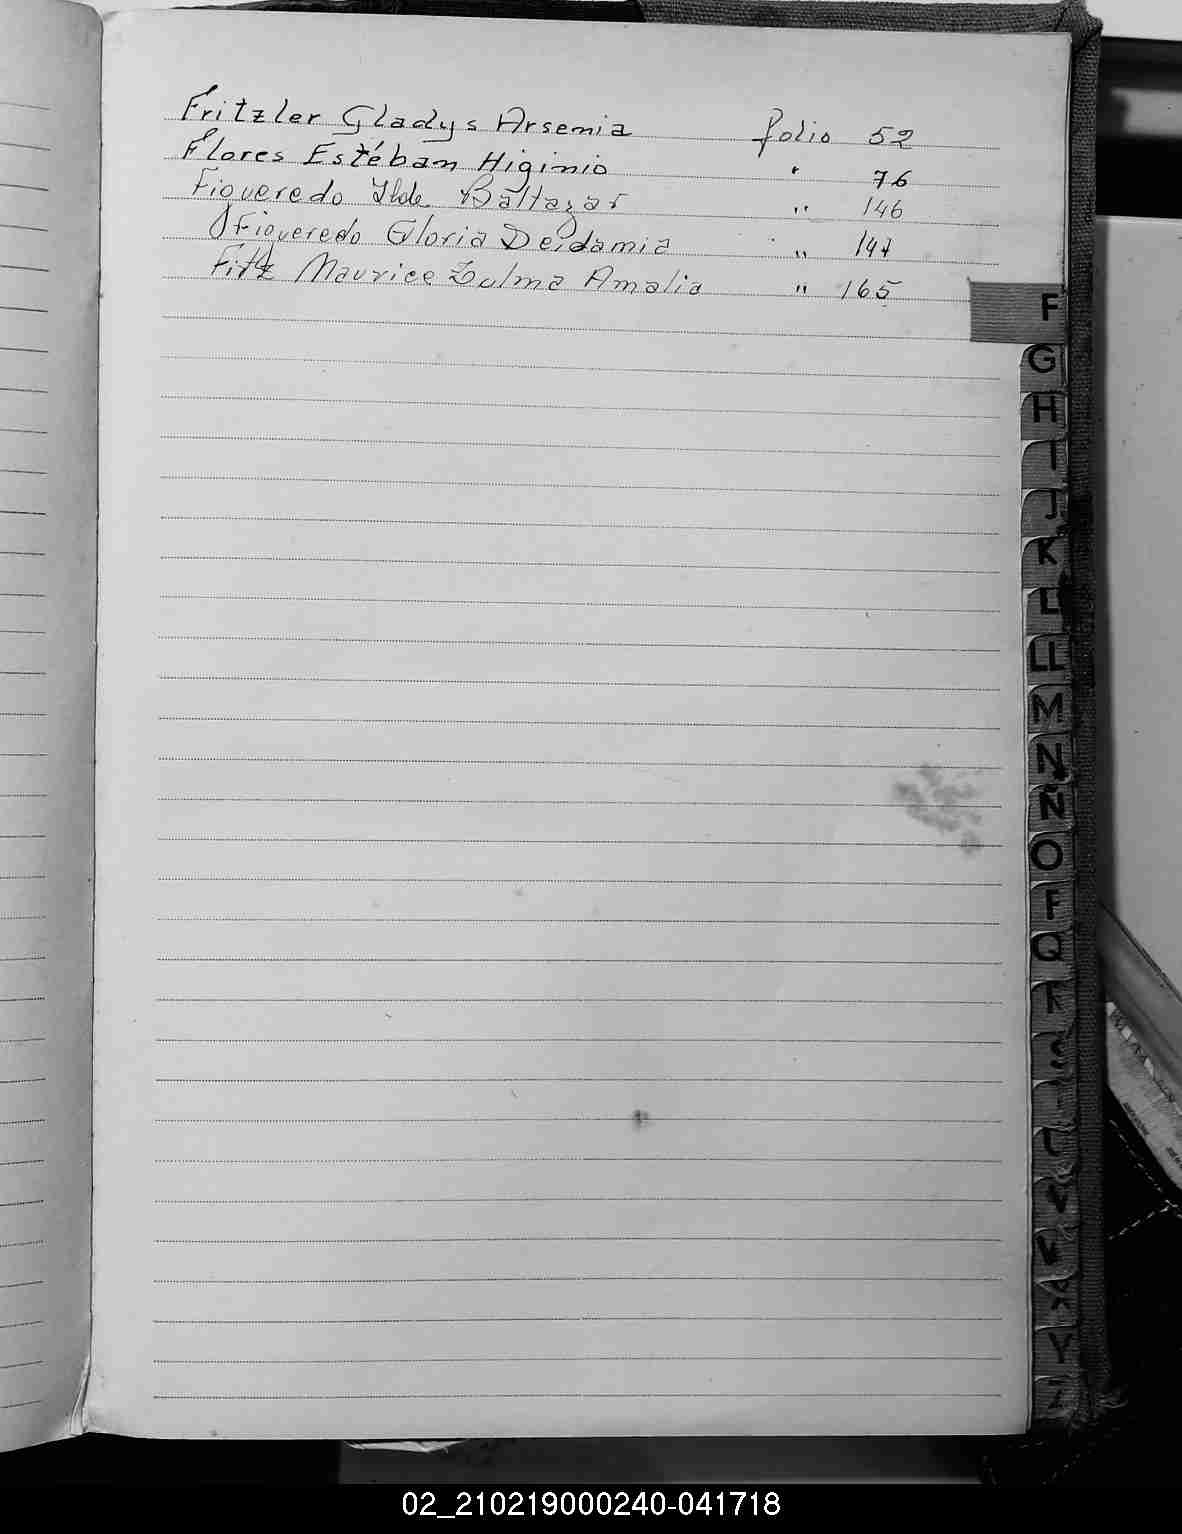 Fritzler Gladys Arsenia folio 52
Flores Estéban Higinio " 76
Figueredo Baltazar " 146
Figueredo Gloria Deidamia " 147
Fitz Maurice Zulma Amalia " 165
F
G
H
I
J
K
L
LL
M
N
Ñ
O
P
Q
R
S
T
U
V
W
X
Y
Z
02_210219000240-041718